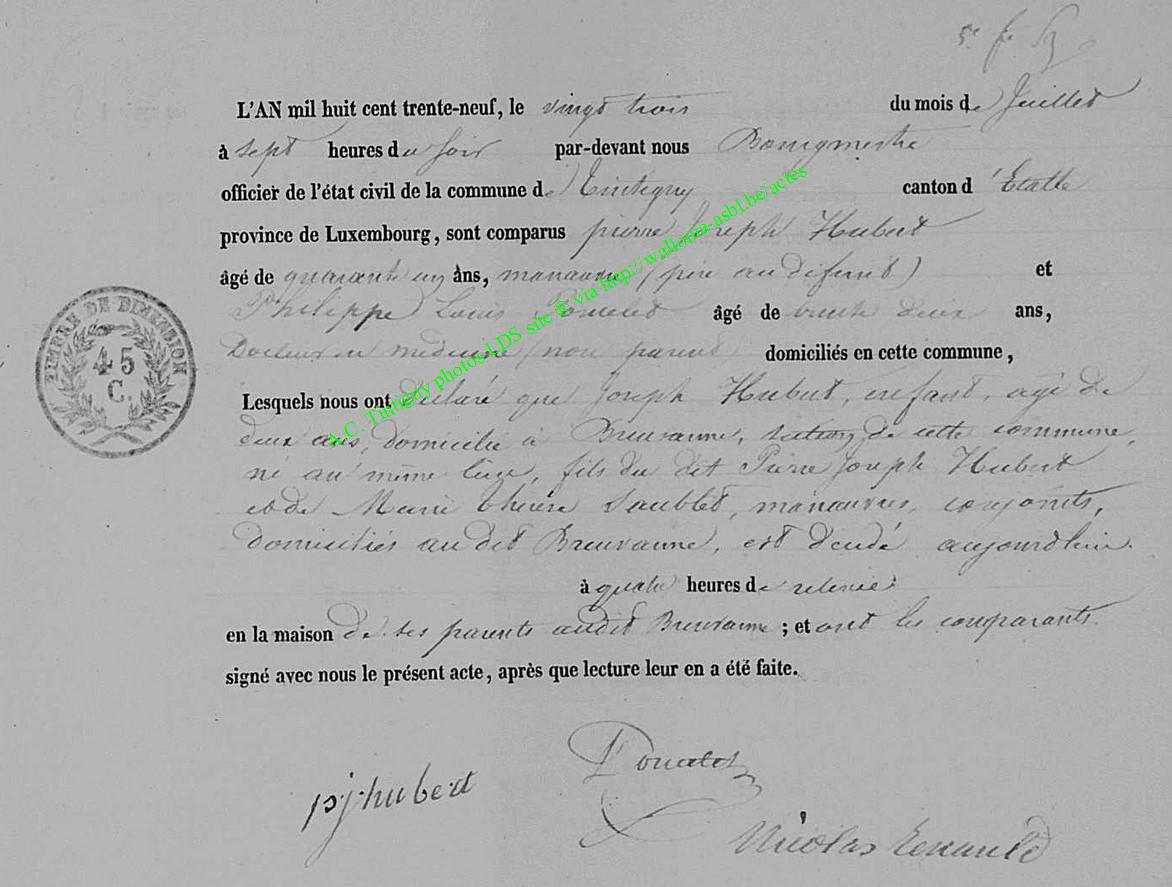 L'AN mil huit cent trente-neuf, le vingt trois du mois de Juillet
à sept heures du soir par-devant nous Bourgmestre
officier de l'état civil de la commune de Tintigny canton d'Etalle
province de Luxembourg, sont comparus pierre Joseph Hubert
âgé de quarante un ans, manœuvre (père au défunt) et
Philippe Louis âgé de deux ans,
Docteur en médecine, non parent domiciliés en cette commune,
Lesquels nous ont déclaré que Joseph Hubert enfant, agé de
deux ans, domicilié à Breuvanne, section de cette commune,
né au même lieu, fils du dit Pierre Joseph Hubert
et de Marie thérèse manœuvres, conjoints,
domiciliés au dit Breuvanne, est décédé aujourd'hui
à quatre heures de relevée
en la maison de ses parents audit Breuvanne ; et ont les comparants
signé avec nous le présent acte, après que lecture leur en a été faite.
TIMBRE DE DIMENSION
45
C.
A.C. Tintigny photos LDS site © via http://wallonia-asbl.be/actes
p.j.hubert
Nicolas